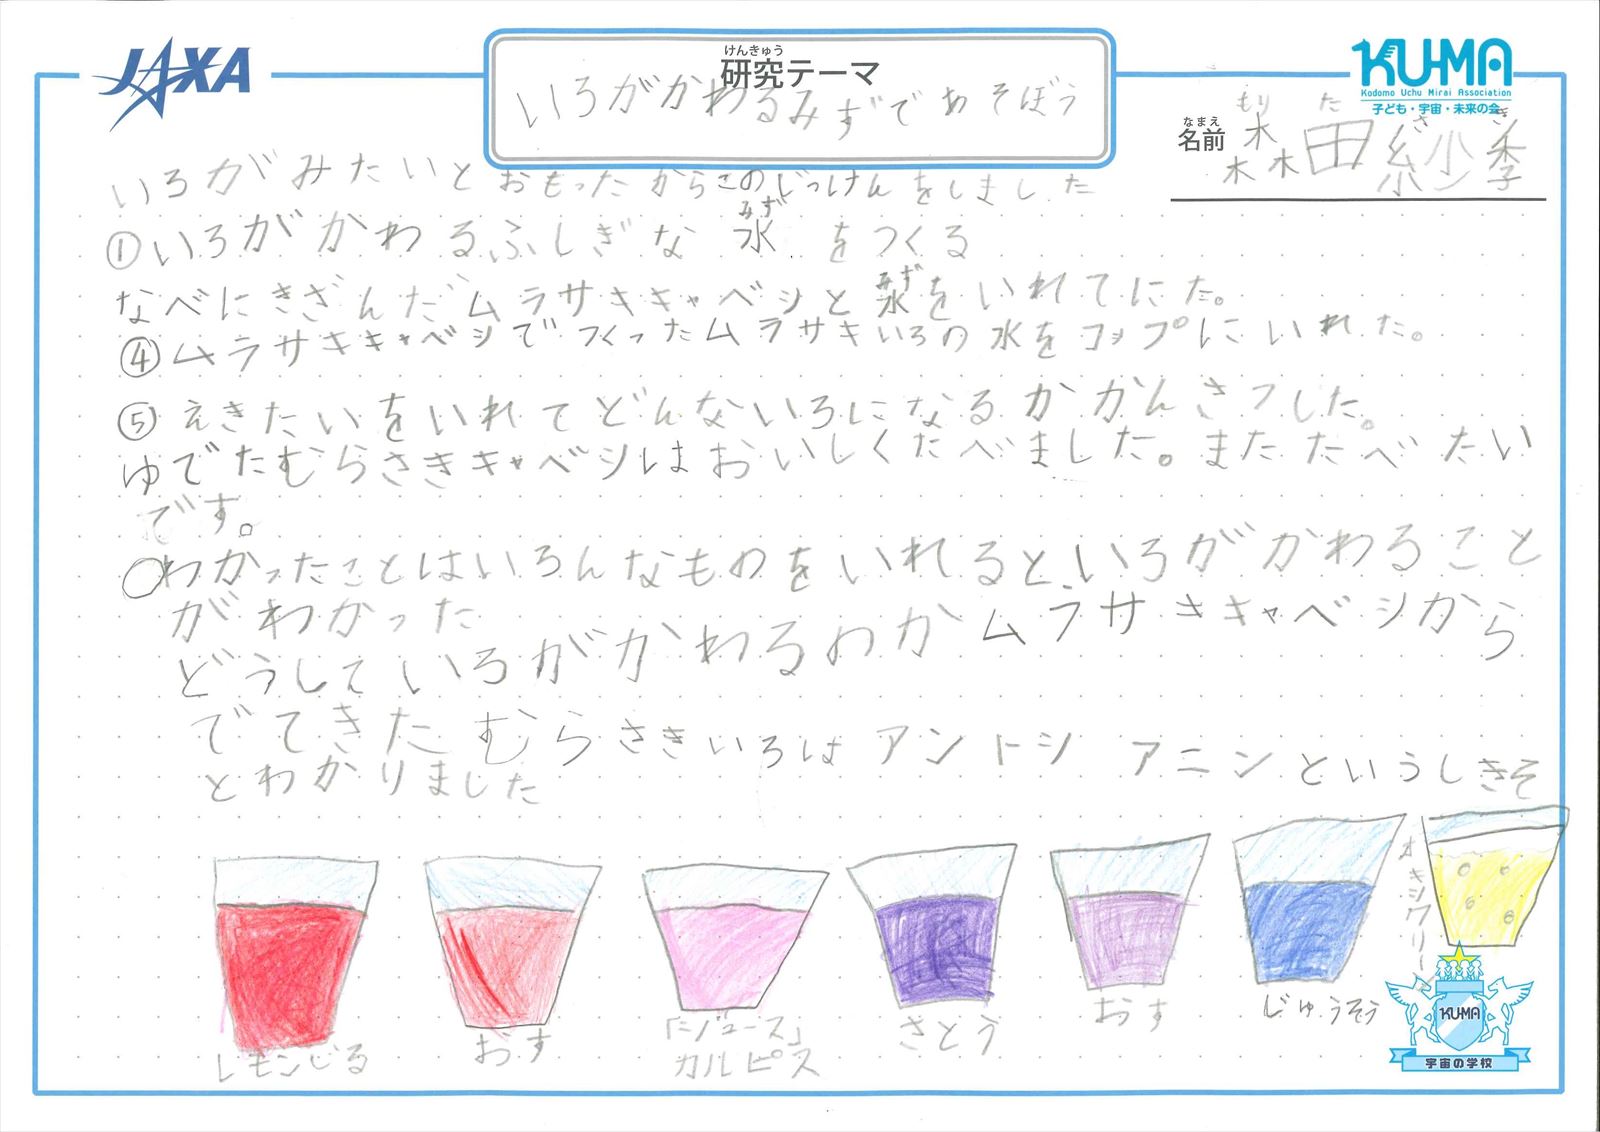 JAXA
けんきゅう
研究テーマ
いろがかわるみずであそぼう
KU-MA
Kodomo Uchu Mirai Association
子ども・宇宙・未来の会
なまえ
名前
もり た さ き
森田紗季
いろがみたいとおもったからこのじっけんをしました
みず
①いろがかわるふしぎな水をつくる
みず
なべにきざんだムラサキキャベシと水をいれてにた。
④ムラサキキャベシでつくったムラサキいろの水をコップにいれた。
⑤えきたいをいれてどんないろになるかかんさつした。
ゆでたむらさきキャベシはおいしくたべました。またたべたい
です。
○わかったことはいろんなものをいれると、いろがかわること
がわかった
どうしていろがかわるのかムラサキキャベシから
でてきたむらさきいろはアントシアニンというしきそ
とわかりました
レモンじる
おす
「ジュース」
カルピス
さとう
おす
じゅうそう
オキシクリーン
KU-MA
宇宙の学校